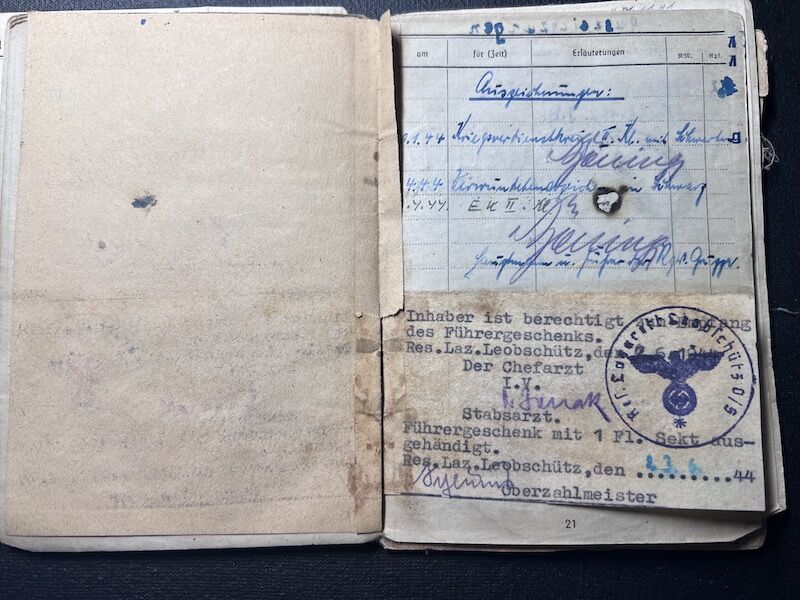 am für (Zeit) Erläuterungen RM. Rpf.
Auszeichnungen:
.1.44 Kriegsverdienstkreuz II. Kl. mit Schwertern
4.4.44 in Schwarz
.4.44. E K II. Kl.
Hauptmann u. Führer
Inhaber ist berechtigt
des Führergeschenks.
Res.Laz.Leobschütz,den
Der Chefarzt
I.V.
Stabsarzt.
Führergeschenk mit 1 Fl. Sekt aus-
gehändigt.
Res.Laz.Leobschütz,den .........44
Oberzahlmeister
Res. Lazarett Leobschütz O/S
21